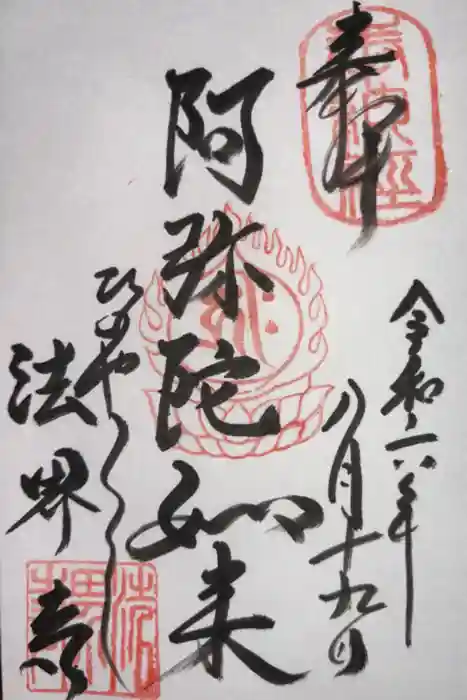 奉拝
奉納經
令和六年
八月十九日
阿弥陀如来
ひのやくし
法界寺